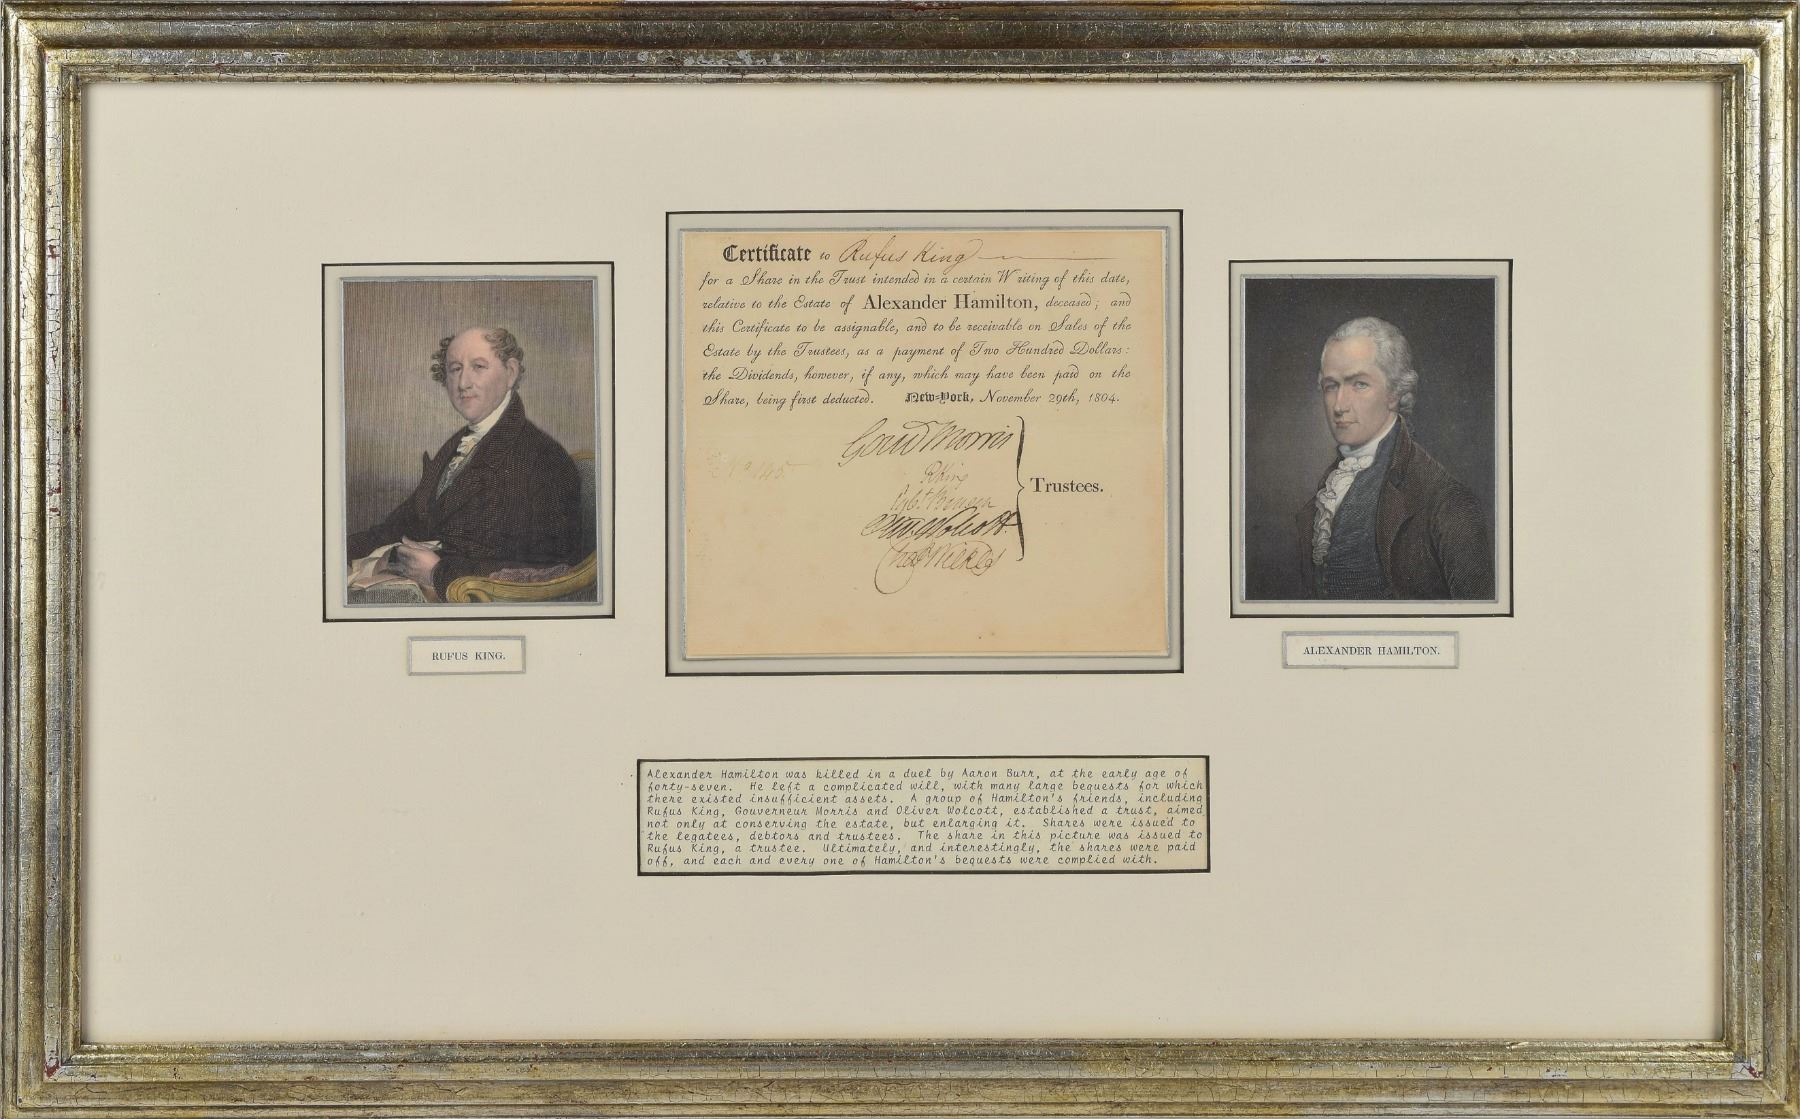 Certificate to Rufus King
for a Share in the Trust intended in a certain Writing of this date,
relative to the Estate of Alexander Hamilton, deceased; and
this Certificate to be assignable, and to be receivable on Sales of the
Estate by the Trustees, as a payment of Two Hundred Dollars:
the Dividends, however, if any, which may have been paid on the
Share, being first deducted. New-York, November 29th, 1804.
Gouv Morris
RKing
Egbt Benson
Trustees.
Oliv Wolcott
Chas Wilkes
No 145
RUFUS KING.
ALEXANDER HAMILTON.
Alexander Hamilton was killed in a duel by Aaron Burr, at the early age of
forty-seven. He left a complicated will, with many large bequests for which
there existed insufficient assets. A group of Hamilton's friends, including
Rufus King, Gouverneur Morris and Oliver Wolcott, established a trust, aimed
not only at conserving the estate, but enlarging it. Shares were issued to
the legatees, debtors and trustees. The share in this picture was issued to
Rufus King, a trustee. Ultimately, and interestingly, the shares were paid
off, and each and every one of Hamilton's bequests were complied with.